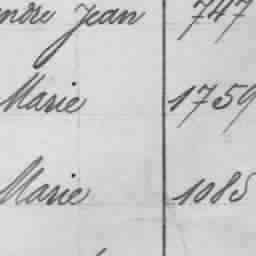 Jean 747
Marie 1759
Marie 1085